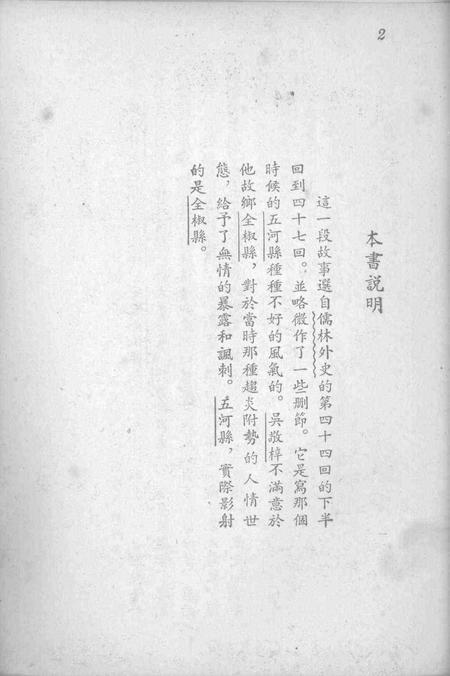 2
本書說明
這一段故事選自儒林外史的第四十四回的下半
回到四十七回。並略微作了一些刪節。它是寫那個
時候的五河縣種種不好的風氣的。吳敬梓不滿意於
他故鄉全椒縣，對於當時那種趨炎附勢的人情世
態，給予了無情的暴露和諷刺。五河縣，實際影射
的是全椒縣。